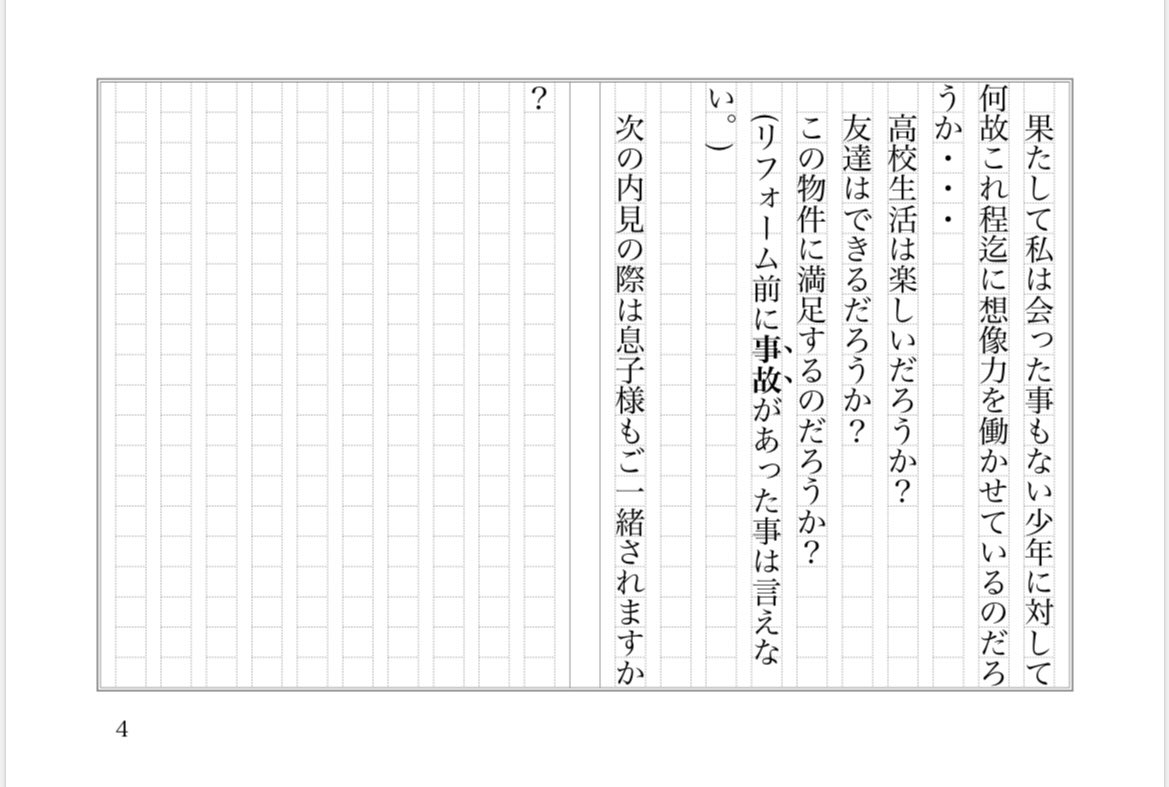 果たして私は会った事もない少年に対して
何故これ程迄に想像力を働かせているのだろ
うか・・・
高校生活は楽しいだろうか？
友達はできるだろうか？
この物件に満足するのだろうか？
(リフォーム前に事故があった事は言えな
い。)
次の内見の際は息子様もご一緒されますか
？
4